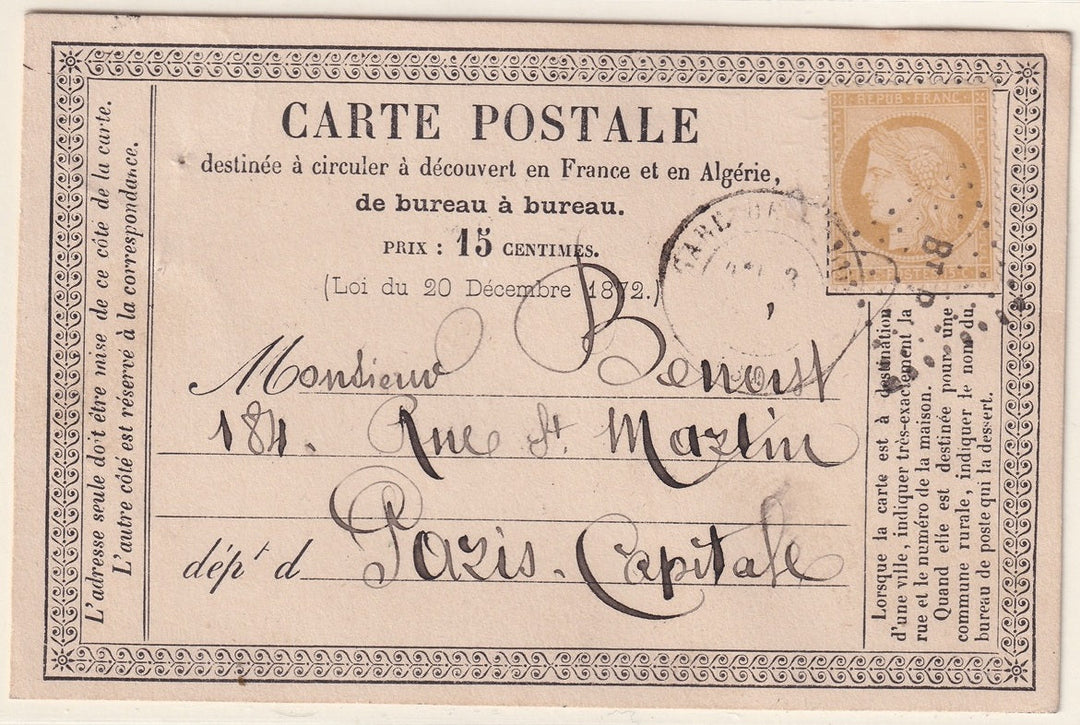 CARTE POSTALE
destinée à circuler à découvert en France et en Algérie,
de bureau à bureau.
PRIX : 15 CENTIMES.
(Loi du 20 Décembre 1872.)
REPUB · FRANC ·
POSTES 15 C
GARE DE
Monsieur Benoist
184. Rue St Martin
dépt d Paris. Capitale
L'adresse seule doit être mise de ce côté de la carte.
L'autre côté est réservé à la correspondance.
Lorsque la carte est à destination
d'une ville, indiquer très-exactement la
rue et le numéro de la maison.
Quand elle est destinée pour une
commune rurale, indiquer le nom du
bureau de poste qui la dessert.